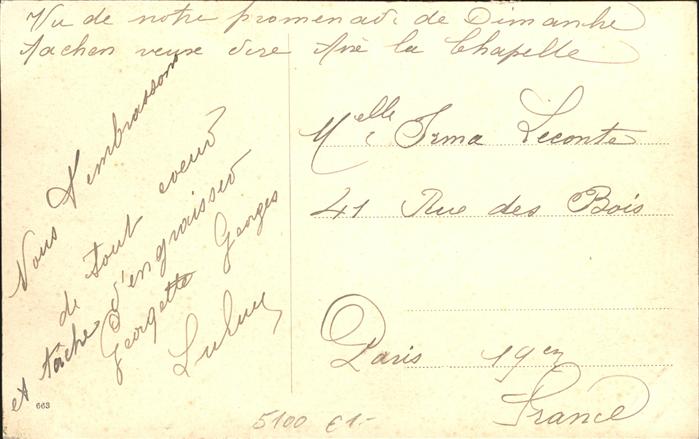 Vu de notre promenade de Dimanche
Aachen veux dire Aixe la Chapelle
Nous t'embrassons
de tout coeur
et tâche d'engraisser
Georgette Georges
Melle Irma Leconte
41 Rue des Bois
Paris 19em
France
663
5100 €1-